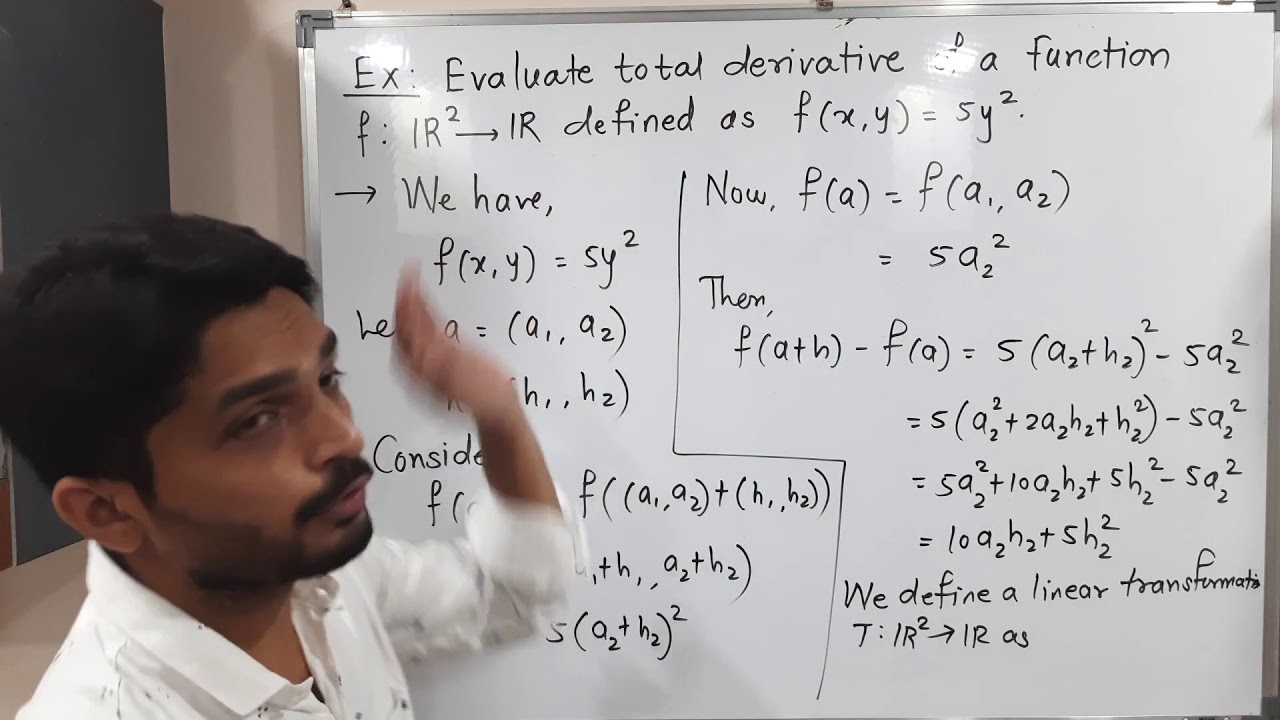 Ex: Evaluate total derivative a function
f: IR² → IR defined as f(x, y) = 5y².
→ We have,
f(x, y) = 5y²
a = (a₁, a₂)
h₁, h₂)
f((a₁, a₂) + (h₁, h₂))
+h₁, a₂+h₂)
5(a₂+h₂)²
Now, f(a) = f(a₁, a₂)
= 5a₂²
Then,
f(a+h) - f(a) = 5(a₂+h₂)² - 5a₂²
= 5(a₂²+2a₂h₂+h₂²) - 5a₂²
= 5a₂²+10a₂h₂+5h₂² - 5a₂²
= 10a₂h₂+5h₂²
We define a linear
T: IR² → IR as